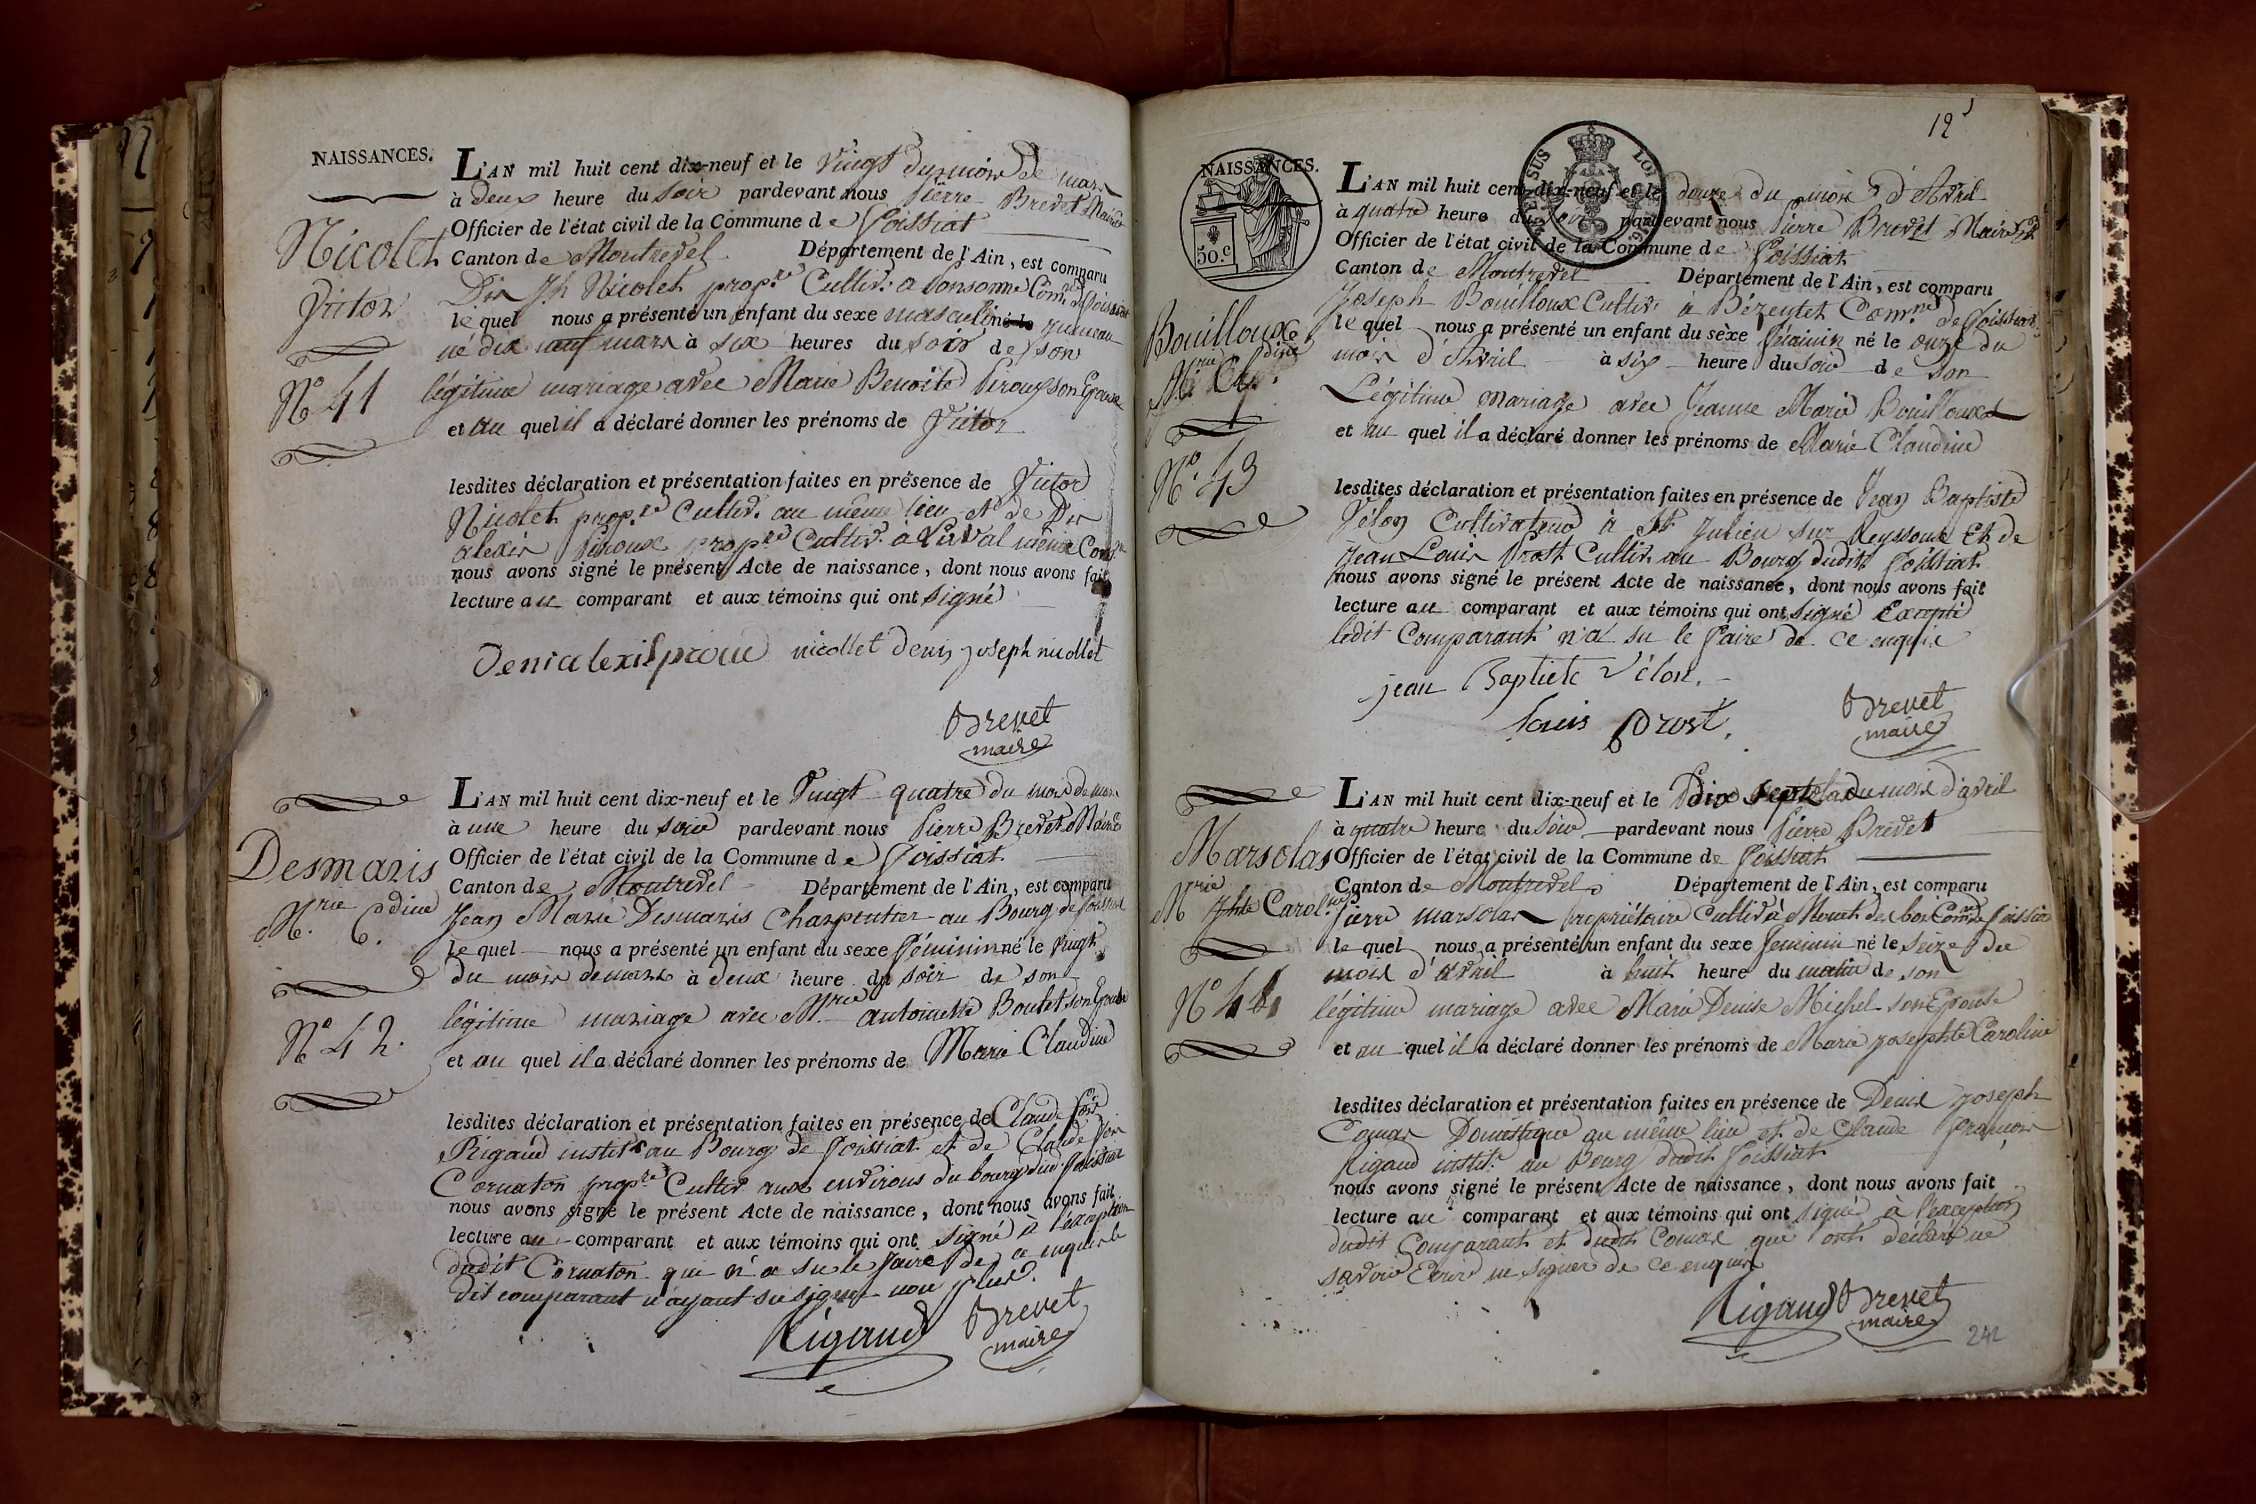 NAISSANCES.
Nicolet
Victor
N° 41
L'AN mil huit cent dix-neuf et le Vingt du mois de mars
à deux heure du soir pardevant nous Pierre Brevet Maire
Officier de l'état civil de la Commune de Foissiat
Canton de Montrevel Département de l'Ain, est comparu
Dis Jh Nicolet prop.re Cultiv. a Sonsonne Com.
le quel nous a présenté un enfant du sexe masculin né le jumeau
né dix neuf mars à six heures du soir de son
légitime mariage avec Marie Benoite Piroux son Epouse
et au quel il a déclaré donner les prénoms de Victor
lesdites déclaration et présentation faites en présence de Victor
Nicolet prop.re Cultiv. au même lieu et de Dis
alexis Piroux prop.re Cultiv. à même Com.ne
nous avons signé le présent Acte de naissance, dont nous avons fait
lecture au comparant et aux témoins qui ont signé
nicollet denis joseph nicollet
Brevet
maire
Desmaris
M.rie C.dine
N° 42.
L'AN mil huit cent dix-neuf et le Vingt quatre du mois de mars
à une heure du soir pardevant nous Pierre Brevet Maire
Officier de l'état civil de la Commune de Foissiat
Canton de Montrevel Département de l'Ain, est comparu
Jean Marie Desmaris Charpentier au Bourg de Foissiat
le quel nous a présenté un enfant du sexe féminin né le vingt
du mois de mars à deux heure du soir de son
légitime mariage avec M.rie antoinette Boulet son Epouse
et au quel il a déclaré donner les prénoms de Marie Claudine
lesdites déclaration et présentation faites en présence de Claude fois
Rigaud instit.r au Bourg de Foissiat et de Claude
Cornaton prop.re Cultiv. aux environs du bourg dud. Foissiat
nous avons signé le présent Acte de naissance, dont nous avons fait
lecture au comparant et aux témoins qui ont signé à l'exception
dudit Cornaton qui n'a su le faire de ce enquis le
dit comparant n'ayant su signer non plus.
Rigaud
Brevet
maire
12
NAISSANCES.
50.c
Bouilloux
M.rie Cl.dine
N° 43
L'AN mil huit cent dix-neuf et le douze du mois d'Avril
à quatre heure du soir pardevant nous Pierre Brevet Maire
Officier de l'état civil de la Commune de Foissiat
Canton de Montrevel Département de l'Ain, est comparu
Joseph Bouilloux Cultiv. à Bézentet Com.ne de Foissiat
le quel nous a présenté un enfant du sèxe féminin né le onze du
mois d'Avril à six heure du soir de son
Légitime mariage avec Jeanne Marie Bouilloux
et au quel il a déclaré donner les prénoms de Marie Claudine
lesdites déclaration et présentation faites en présence de Jean Baptiste
Vélon Cultivateur à St Julien sur Reyssouze Et de
Jean Louis Prost Cultiv. au Bourg dudit Foissiat
nous avons signé le présent Acte de naissance, dont nous avons fait
lecture au comparant et aux témoins qui ont signé Excepté
ledit Comparant n'a su le faire de ce enquis
jean Baptiste Vélon.
Louis Prost.
Brevet
maire
Marsolas
M.rie Jphte Carol.ne
N° 44
L'AN mil huit cent dix-neuf et le dix sept du mois d'avril
à quatre heure du soir pardevant nous Pierre Brevet
Officier de l'état civil de la Commune de Foissiat
Canton de Montrevel Département de l'Ain, est comparu
Pierre marsolas propriétaire Cultiv. à Mont des bois Com.ne de Foissiat
le quel nous a présenté un enfant du sexe feminin né le seize du
mois d'avril à huit heure du matin de son
légitime mariage avec Marie Denise Michel son Epouse
et au quel il a déclaré donner les prénoms de Marie josephte Caroline
lesdites déclaration et présentation faites en présence de Denis joseph
Comas Domestique au même lieu et de Claude françois
Rigaud instit.r au Bourg dudit Foissiat
nous avons signé le présent Acte de naissance, dont nous avons fait
lecture au comparant et aux témoins qui ont signé à l'exception
dudit Comparant et dudit Comas qui ont déclaré ne
savoir Ecrire ni signer de ce enquis
Rigaud
Brevet
maire
242